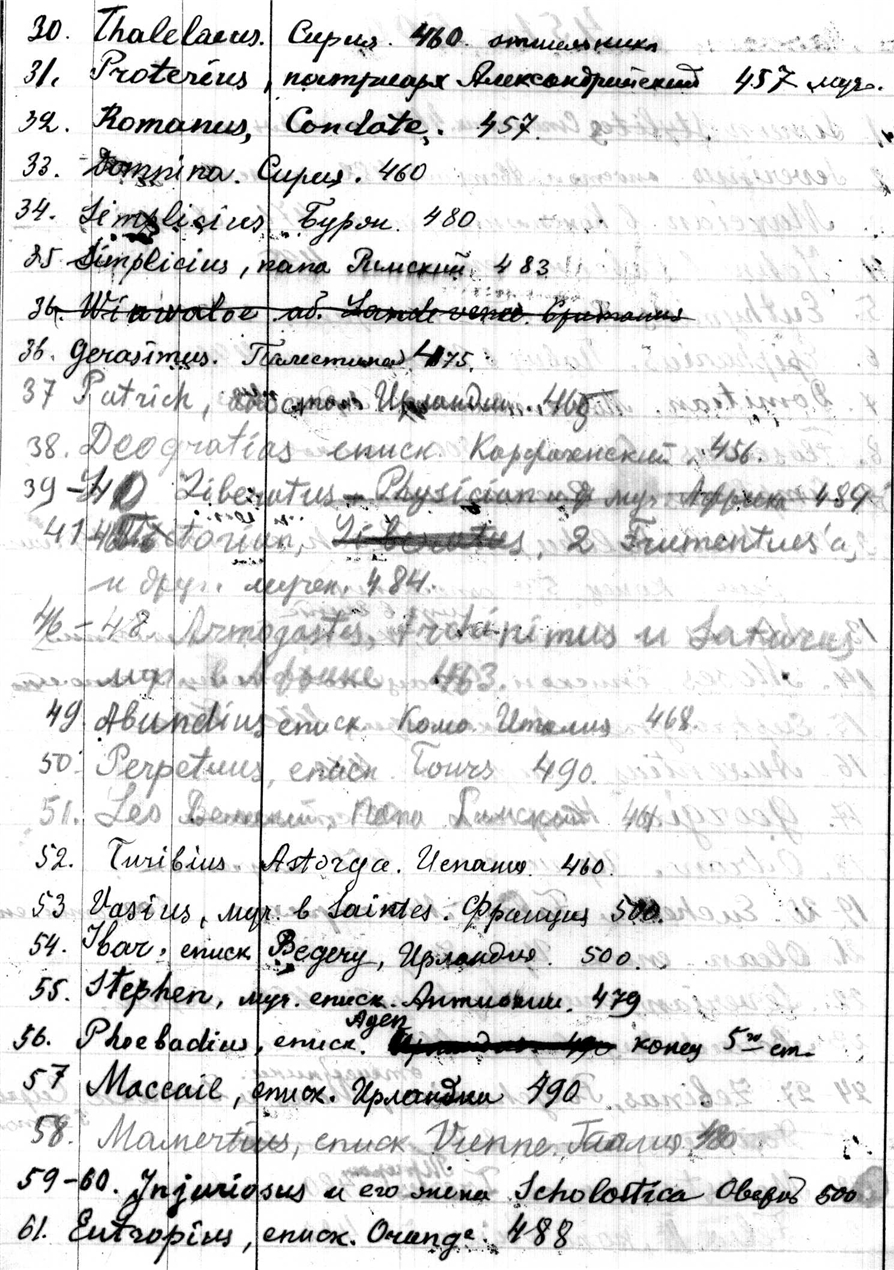 30. Thalelaeus. Сирия. 460. отшельники
31. Proterius, патриарх Александрийский 457 муч.
32. Romanus, Condate. 457.
33. Domnina. Сирия. 460
34. Simplicius Бурж. 480
35 Simplicius, папа Римский 483
36. Winwaloe аб. Landevenec. Британия
36. Gerasimus. Палестина 475.
37 Patrick, Ирландии. 465
38. Deogratias еписк. Карфагенский 456.
39-40 Liberatus - Physician муч. Африка 484
41 Victorian, Liberatus, 2 Frumentius'a,
и друг. мучен. 484.
46-48 Armogastes, Archinimus и Saturus
муч. в Африке 463.
49 Abundius еписк Комо. Италия 468
50 Perpetuus, еписк Tours 490.
51. Leo Великий, папа Римский 461.
52. Turibius Astorga. Испания. 460.
53 Vasius, муч. в Saintes. Франция 500.
54. Ibar, еписк Begery, Ирландия. 500.
55. Stephen, муч. еписк. Антиохии. 479
56. Phoebadius, еписк. Аден конец 5го ст.
57 Maccail, еписк. Ирландии 490
58. Mamertius, еписк Vienne, Галлия
59-60. Injuriosus и его жена Scholastica 500
61. Eutropius, еписк. Orange. 488